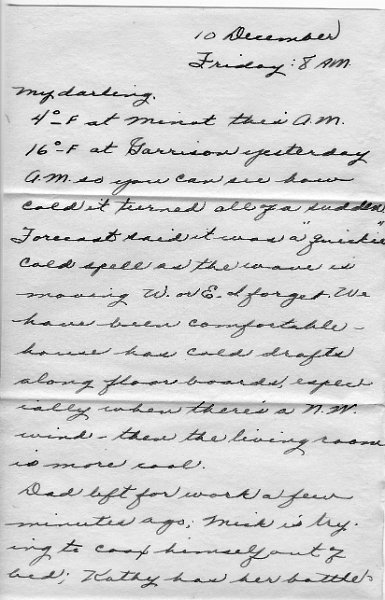 10 December
Friday: 8 AM
My darling.
4°-F at Minot this A.M.
16°-F at Garrison yesterday
A.M. so you can see how
cold it turned all of a sudden
Forecast said it was a "quickie"
cold spell as the wave is
moving W. or E. I forget. We
have been comfortable -
house has cold drafts
along floor boards, espec
ially when there's a N.W.
wind - then the living room
is more cool.
Dad left for work a few
minutes ago; Mick is try-
ing to coax himself out of
bed; Kathy has her bottle